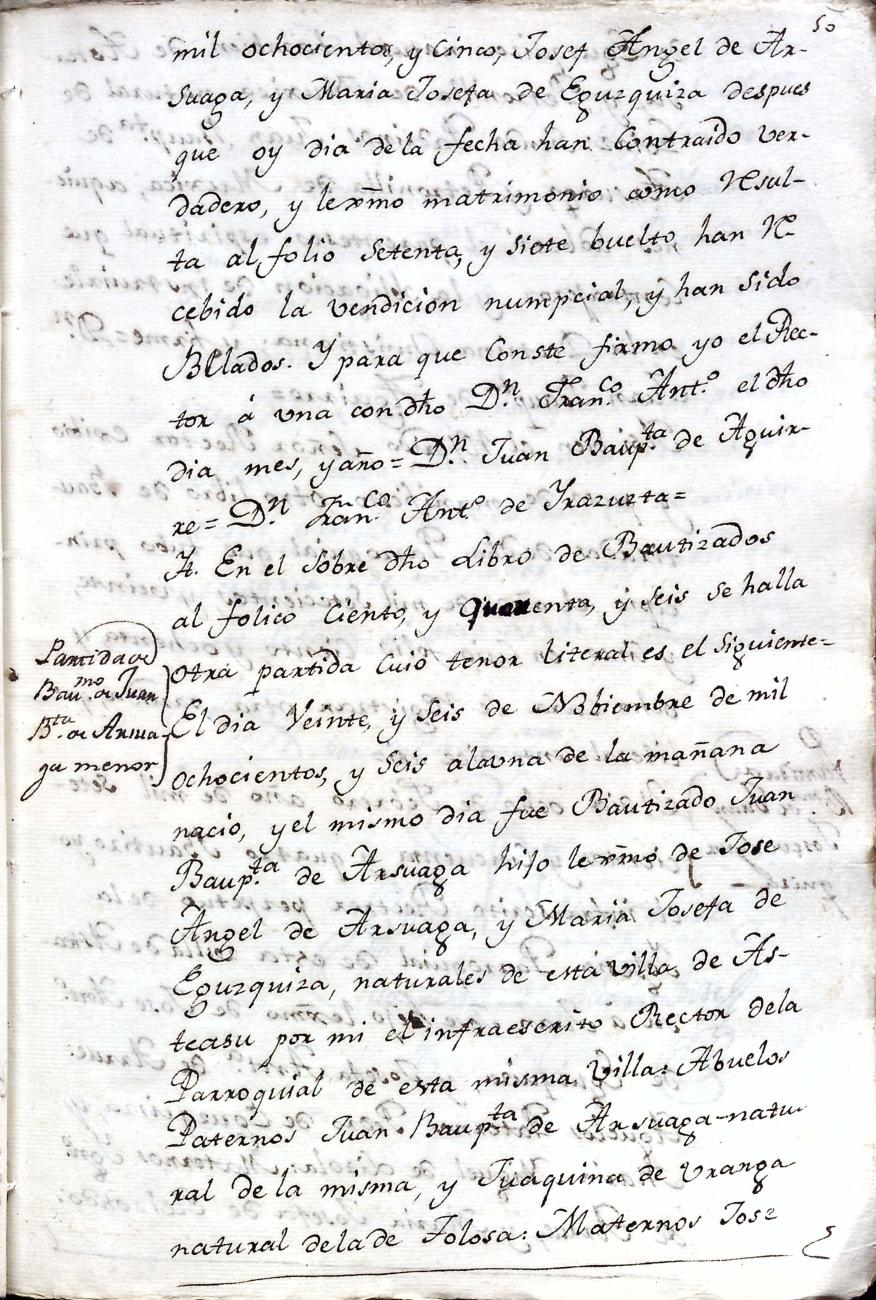 50
mil ochocientos, y Cinco, Josef Angel de Ar-
suaga, y Maria Josefa de Eguzquiza despues
que oy dia dela fecha han Contraido ver-
dadero, y lexmo matrimonio como Resul-
ta al folio Setenta, y Siete buelto, han Re
cebido la vendicion numpcial, y han Sido
Belados. Y para que Conste firmo yo el Rec-
tor á una con dho Dn Franco Anto el dho
dia mes, y año = Dn Juan Baupta de Aguir-
re = Dn Franco Anto de Yrazuzta =
Yt. En el Sobre dho Libro de Bautizados
al folico Ciento, y Quarenta, y seis se halla
Partida de
Baumo de Juan
Bta de Arsua-
ga menor
otra partida Cuio tenor literal es el Siguiente=
El dia Veinte, y Seis de Nobiembre de mil
ochocientos, y Seis alauna de la mañana
nacio, y el mismo dia fue Bautizado Juan
Baupta de Arsuaga hijo lexmo de Jose
Angel de Arsuaga, y Maria Josefa de
Eguzquiza, naturales de esta villa de As-
teasu por mi el infraescrito Rector dela
Parroquial de esta misma villa: Abuelos
Paternos Juan Baupta de Arsuaga natu-
ral de la misma, y Juaquina de Uranga
natural dela de Tolosa: Maternos Jose